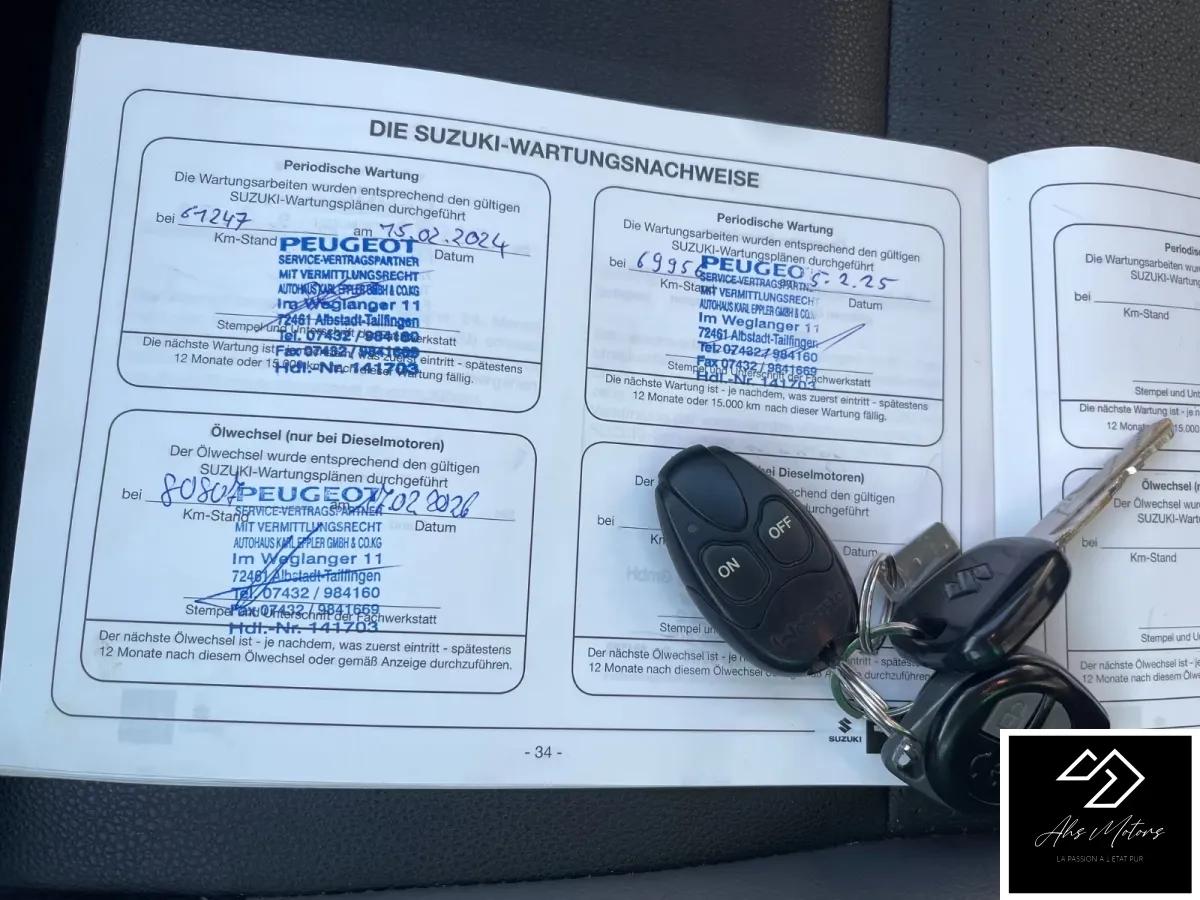 DIE SUZUKI-WARTUNGSNACHWEISE
Periodische Wartung
Die Wartungsarbeiten wurden entsprechend den gültigen
SUZUKI-Wartungsplänen durchgeführt
bei 61247 am 15.02.2024
Km-Stand Datum
PEUGEOT
SERVICE-VERTRAGSPARTNER
MIT VERMITTLUNGSRECHT
AUTOHAUS KARL EPPLER GMBH & CO.KG
Im Weglanger 11
72461 Albstadt-Tailfingen
Stempel und Unterschrift der Fachwerkstatt
Tel. 07432 / 984160
Fax 07432 / 9841669
Hdl.-Nr. 141703
Die nächste Wartung ist - je nachdem, was zuerst eintritt - spätestens
12 Monate oder 15.000 km nach dieser Wartung fällig.
Periodische Wartung
Die Wartungsarbeiten wurden entsprechend den gültigen
SUZUKI-Wartungsplänen durchgeführt
bei 69956 5.2.25
Km-Stand Datum
PEUGEO
SERVICE-VERTRAGSPARTN
MIT VERMITTLUNGSRECH
AUTOHAUS KARL EPPLER GMBH & CO.
Im Weglanger 11
72461 Albstadt-Tailfingen
Tel. 07432 / 984160
Fax 07432 / 9841669
Stempel und Unterschrift der Fachwerkstatt
Hdl.-Nr. 141703
Die nächste Wartung ist - je nachdem, was zuerst eintritt - spätestens
12 Monate oder 15.000 km nach dieser Wartung fällig.
Ölwechsel (nur bei Dieselmotoren)
Der Ölwechsel wurde entsprechend den gültigen
SUZUKI-Wartungsplänen durchgeführt
bei am 02 2026
Km-Stand Datum
PEUGEOT
SERVICE-VERTRAGSPARTNER
MIT VERMITTLUNGSRECHT
AUTOHAUS KARL EPPLER GMBH & CO.KG
Im Weglanger 11
72461 Albstadt-Tailfingen
Tel. 07432 / 984160
Fax 07432 / 9841669
Stempel und Unterschrift der Fachwerkstatt
Hdl.-Nr. 141703
Der nächste Ölwechsel ist - je nachdem, was zuerst eintritt - spätestens
12 Monate nach diesem Ölwechsel oder gemäß Anzeige durchzuführen.
bei Dieselmotoren)
Der entsprechend den gültigen
durchgeführt
bei
Datum
Stempel
Der nächste Ölwechsel ist - je
12 Monate nach diesem Ölwechsel durchzuführen.
ON OFF
- 34 -
SUZUKI
Die Wartungsarbeiten wurden
SUZUKI-Wartun
bei
Km-Stand
Stempel und Unt
Die nächste Wartung ist - je n
12 Monate 15.000
Ölwechsel
Der Ölwechsel wurde
SUZUKI-Wart
bei
Km-Stand
Stempel und U
Der nächste Ölwechsel ist - je
12 Monate nach diesem Ölwe
Ahs Motors
LA PASSION A L'ETAT PUR